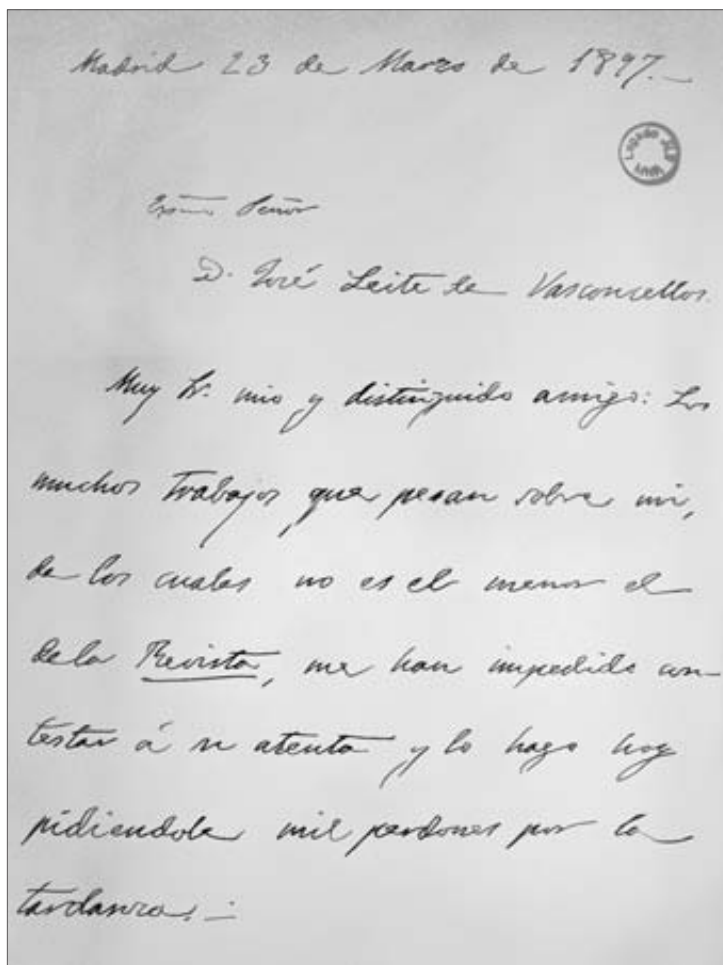 Madrid 23 de Marzo de 1897._
Legado JLV
Exmo Señor
D. José Leite de Vasconcellos.
Muy Sr. mio y distinguido amigo: Los
muchos trabajos, que pesan sobre mi,
de los cuales no es el menor el
de la Revista, me han impedido con-
testar á su atenta y lo hago hoy
pidiendole mil perdones por la
tardanza. _